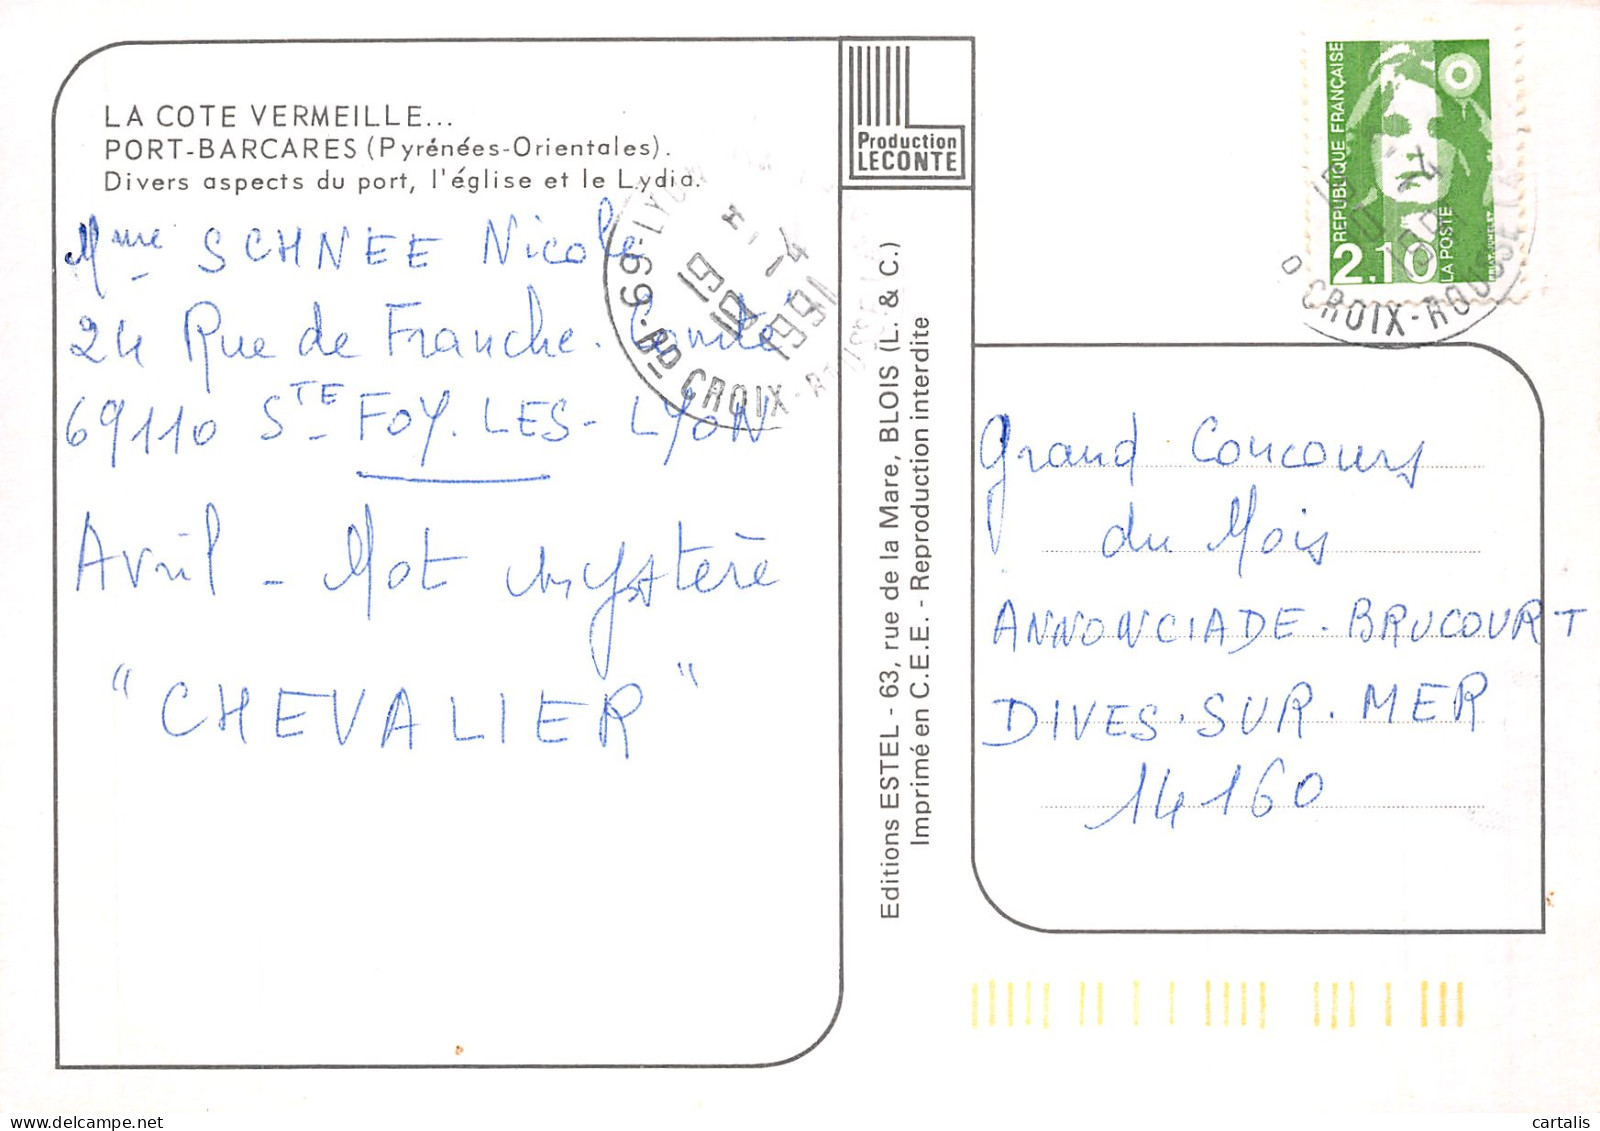 LA COTE VERMEILLE...
PORT-BARCARES (Pyrénées-Orientales).
Divers aspects du port, l'église et le Lydia.
Mme SCHNEE Nicole
24 Rue de Franche-Comté
69110 STE FOY-LES-LYON
Avril - Mot mystère
"CHEVALIER"
69-LYON
19 H
10 -4
1991
RD CROIX-ROUSSE
Production
LECONTE
Editions ESTEL - 63, rue de la Mare, BLOIS (L. & C.)
Imprimé en C.E.E. - Reproduction interdite
REPUBLIQUE FRANÇAISE
2.10
LA POSTE
-4
1991
CROIX-ROUSSE
Grand Concours
du Mois
ANNONCIADE-BRUCOURT
DIVES-SUR-MER
14160
cartalis